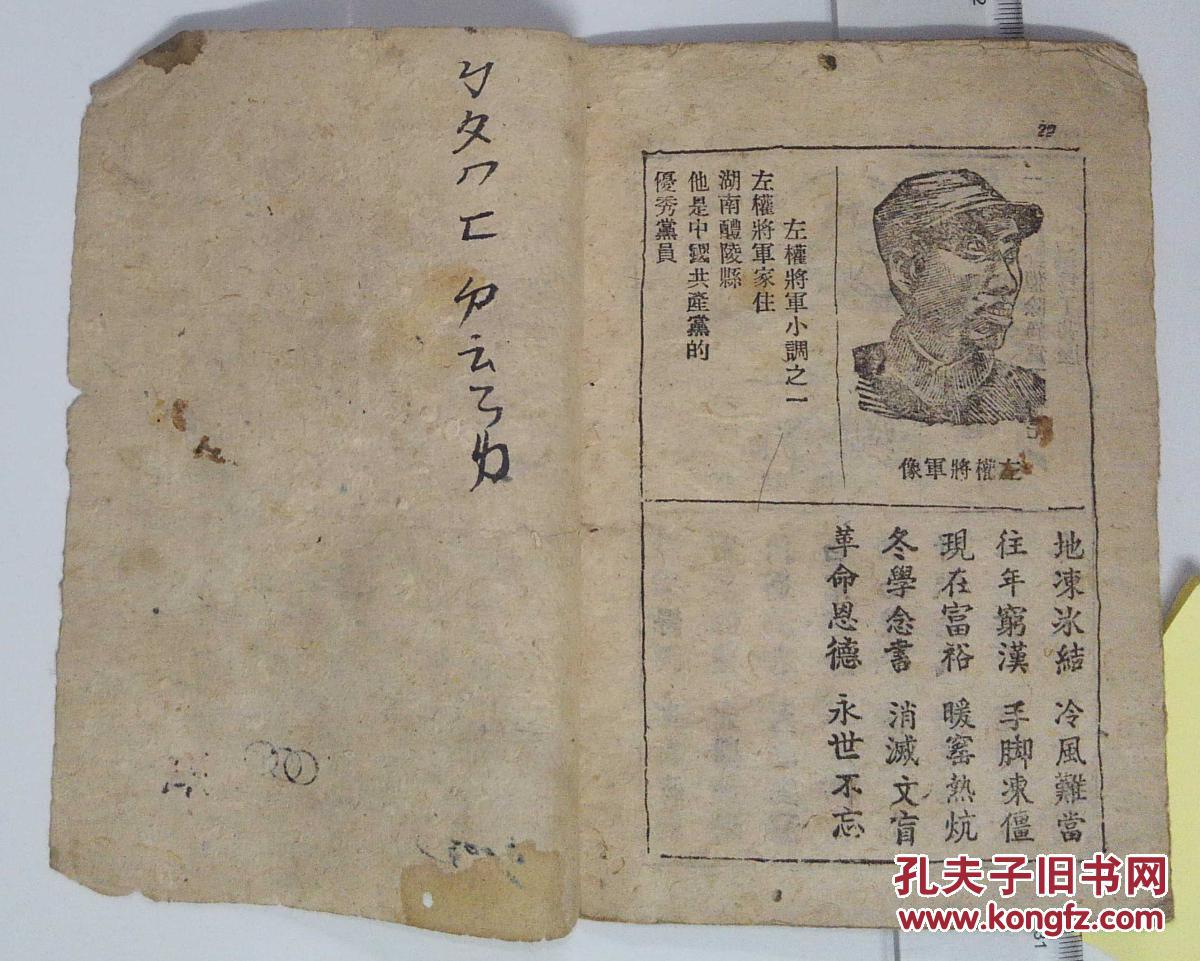 22
左權將軍像
左權將軍小調之一
左權將軍家住
湖南醴陵縣
他是中國共產黨的
優秀黨員
地凍氷結 冷風難當
往年窮漢 手脚凍僵
現在富裕 暖窰熱炕
冬學念書 消滅文盲
革命恩德 永世不忘
ㄅㄆㄇㄈ
孔夫子旧书网
www.kongfz.com